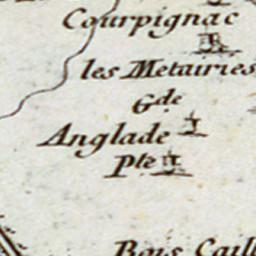 Courpignac
les Metairies
Gde
Anglade
Pte
Bois Caill